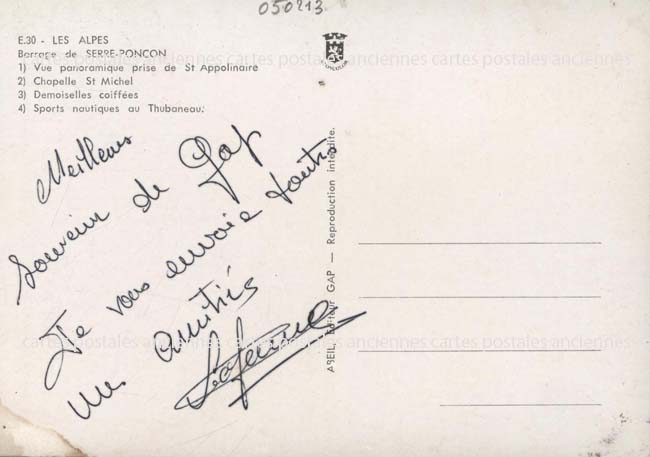 050213
E.30 - LES ALPES
Barrage de SERRE-PONÇON
1) Vue panoramique prise de St Appolinaire
2) Chapelle St Michel
3) Demoiselles coiffées
4) Sports nautiques au Thubaneau.
cartes postales anciennes cartes postales anciennes
Meilleurs
Souvenir de Gap
Je vous envoie toutes
mes amitiés
ABEIL, Editeur GAP — Reproduction interdite.
cartes postales anciennes cartes postales anciennes